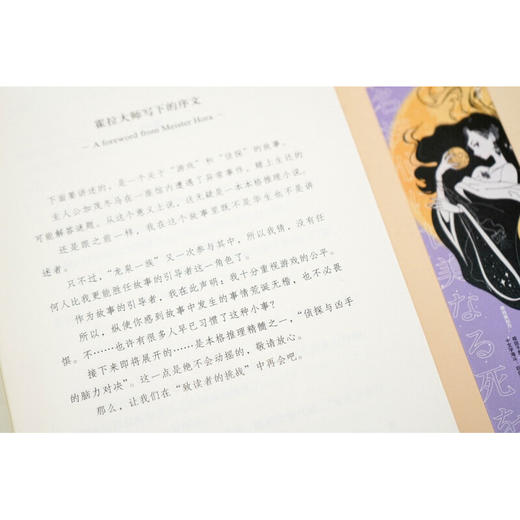 霍拉大师写下的序文
A foreword from Meister Hora
下面要讲述的，是一个关于“游戏”和“侦探”的故事。
主人公加茂冬马在一座馆内遭遇了异常事件，赌上生还的
可能解答谜题。从这个意义上说，这无疑是一本本格推理小说。
还是跟之前一样，我在这个故事里既不是华生也不是讲
述者。
只不过，“龙泉一族”又一次参与其中，所以我猜，没有任
何人比我更能胜任故事的引导者这一角色了。
作为故事的引导者，我在此声明：我十分重视游戏的公平。
所以，纵使你感到故事中发生的事情荒诞无稽，也不必畏
惧。不……也许有很多人早已习惯了这种小事？
接下来即将展开的……是本格推理精髓之一，“侦探与凶手
的脑力对决”。这一点是绝不会动摇的，敬请放心。
那么，让我们在“致读者的挑战”中再会吧。
美なる死を